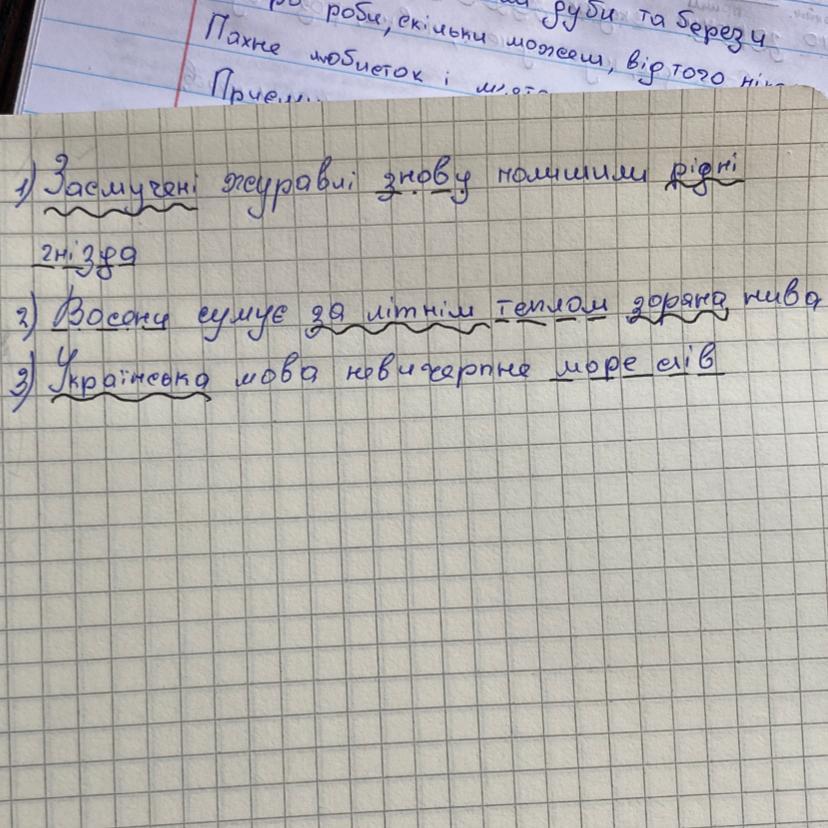 роби, скільки можеш, від того
дуби та берези
Пахне любисток і м'ята
1) Засмучені журавлі знову полишили рідні
гнізда
2) Восени сумує за літнім теплом зоряна нива
3) Українська мова невичерпне море слів